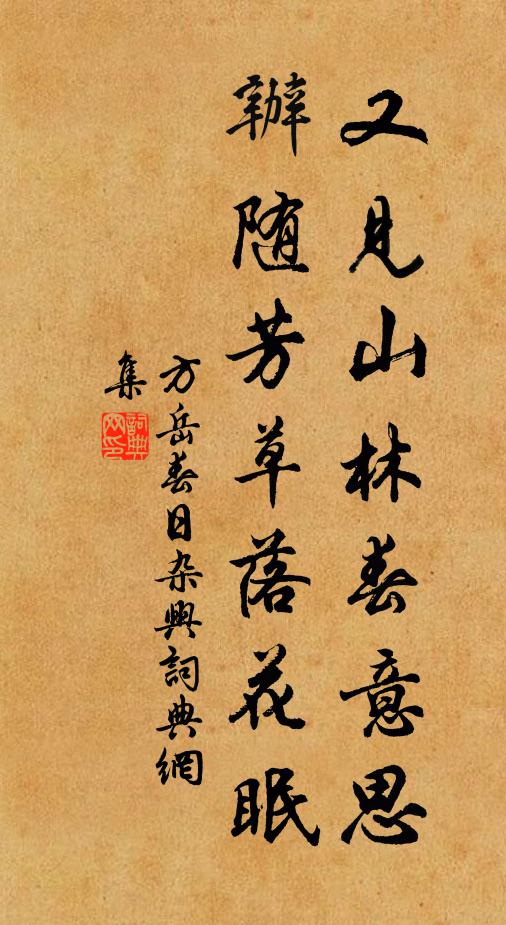 又見山林春意思
辦随芳草落花眠
方岳春日杂興詞典網
集
詞典
网印